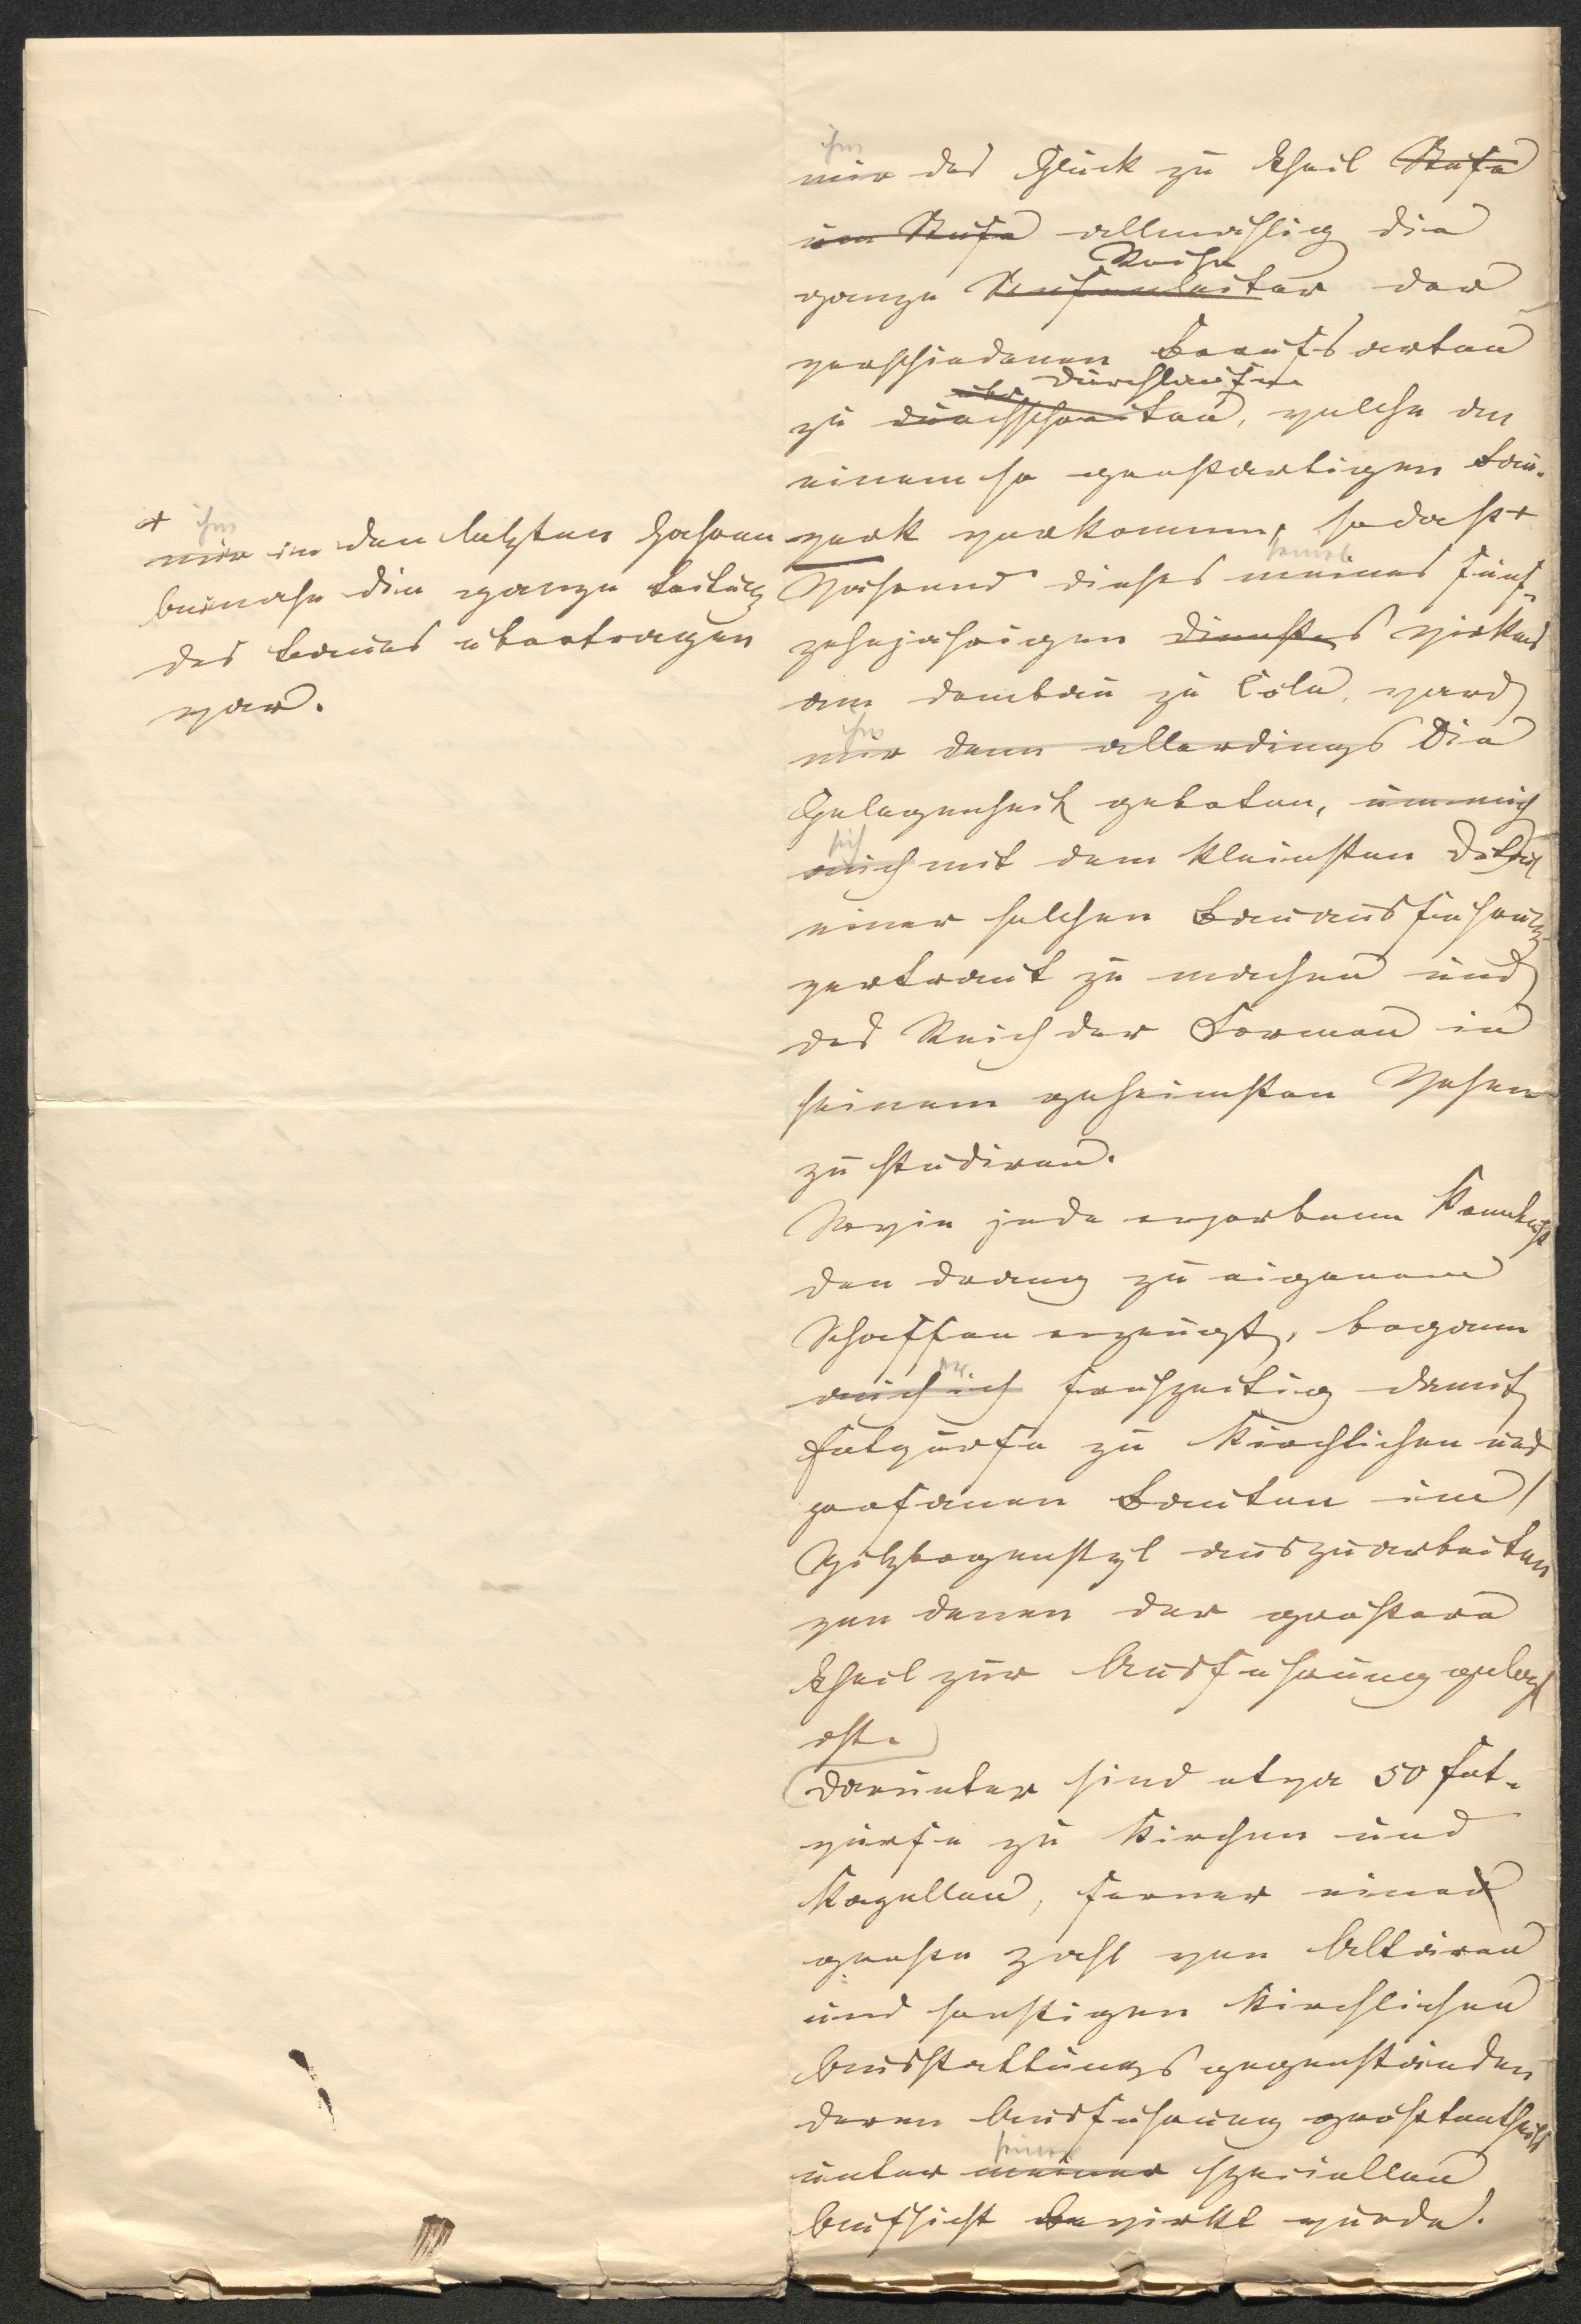 ihm
mir das Glück zu Theil Stufe
um Stufe allmählig die
Reihe
ganze Stufenleiter der
verschiedenen Berufsarten
über durchlaufen
zu durchschreiten, welche an
einem so großartigen Bau-
werk vorkommen, sodaß +
seines
Während dieses meines fünf-
zehnjährigen Dienstes Wirkens
am Dombau zu Cöln, ward
ihm
mir denn allerdings die
Gelegenheit geboten, um mich
sich
mich mit dem kleinsten Detail
einer solchen Bauausführung
vertraut zu machen und
das Reich der Formen in
seinem geheimsten Wesen
zu studiren.
Wie jede erworbene Kenntniß
den Drang zu eigenem
Schaffen erzeugt, begann
er
auch ich frühzeitig damit
Entwürfe zu kirchlichen und
profanen Bauten im
Spitzbogenstyl auszuarbeiten
von denen der größere
Theil zur Ausführung gelangt
ist.
Darunter sind etwa 50 Ent-
würfe zu Kirchen und
Kapellen, ferner einer
große Zahl von Altären
und sonstigen kirchlichen
Ausstattungsgegenständen
deren Ausführung größtentheils
seiner
unter meiner speciellen
Aufsicht bewirkt wurde.
+ ihm
mir in den letzten Jahren
beinahe die ganze Leitung
des Baues übertragen
war.